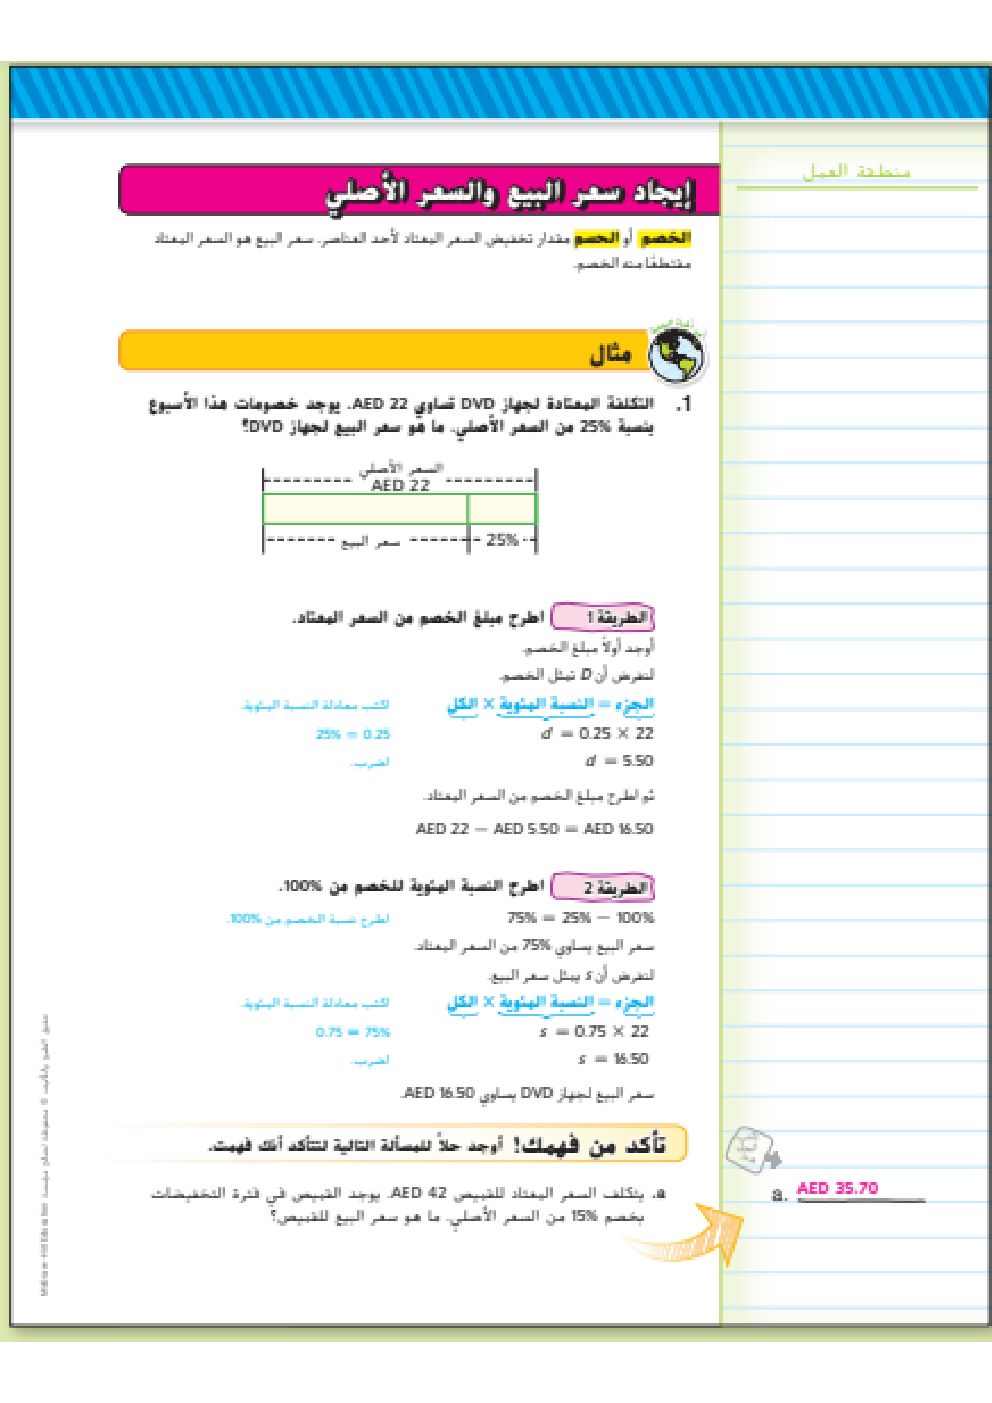 منطقة العمل
إيجاد سعر البيع والسعر الأصلي
الخصم أو الحسم مقدار تخفيض السعر المعتاد لأحد العناصر. سعر البيع هو السعر المعتاد
مقتطعًا منه الخصم.
مثال
1. التكلفة المعتادة لجهاز DVD تساوي AED 22. يوجد خصومات هذا الأسبوع
بنسبة 25% من السعر الأصلي. ما هو سعر البيع لجهاز DVD؟
السعر الأصلي
AED 22
سعر البيع 25%
الطريقة 1 اطرح مبلغ الخصم من السعر المعتاد.
أوجد أولاً مبلغ الخصم.
لنفرض أن D تمثل الخصم.
الجزء = النسبة المئوية × الكل اكتب معادلة النسبة المئوية.
d = 0.25 × 22 25% = 0.25
d = 5.50 اضرب.
ثم اطرح مبلغ الخصم من السعر المعتاد.
AED 22 − AED 5.50 = AED 16.50
الطريقة 2 اطرح النسبة المئوية للخصم من 100%.
75% = 25% − 100% اطرح نسبة الخصم من 100%.
سعر البيع يساوي 75% من السعر المعتاد.
لنفرض أن s يمثل سعر البيع.
الجزء = النسبة المئوية × الكل اكتب معادلة النسبة المئوية.
s = 0.75 × 22 0.75 = 75%
s = 16.50 اضرب.
سعر البيع لجهاز DVD يساوي AED 16.50.
تأكد من فهمك! أوجد حلاً للمسألة التالية لتتأكد أنك فهمت.
a. يتكلف السعر المعتاد للقميص AED 42. يوجد القميص في فترة التخفيضات
بخصم 15% من السعر الأصلي. ما هو سعر البيع للقميص؟
a. AED 35.70
حقوق الطبع والتأليف © محفوظة لصالح مؤسسة McGraw-Hill Education